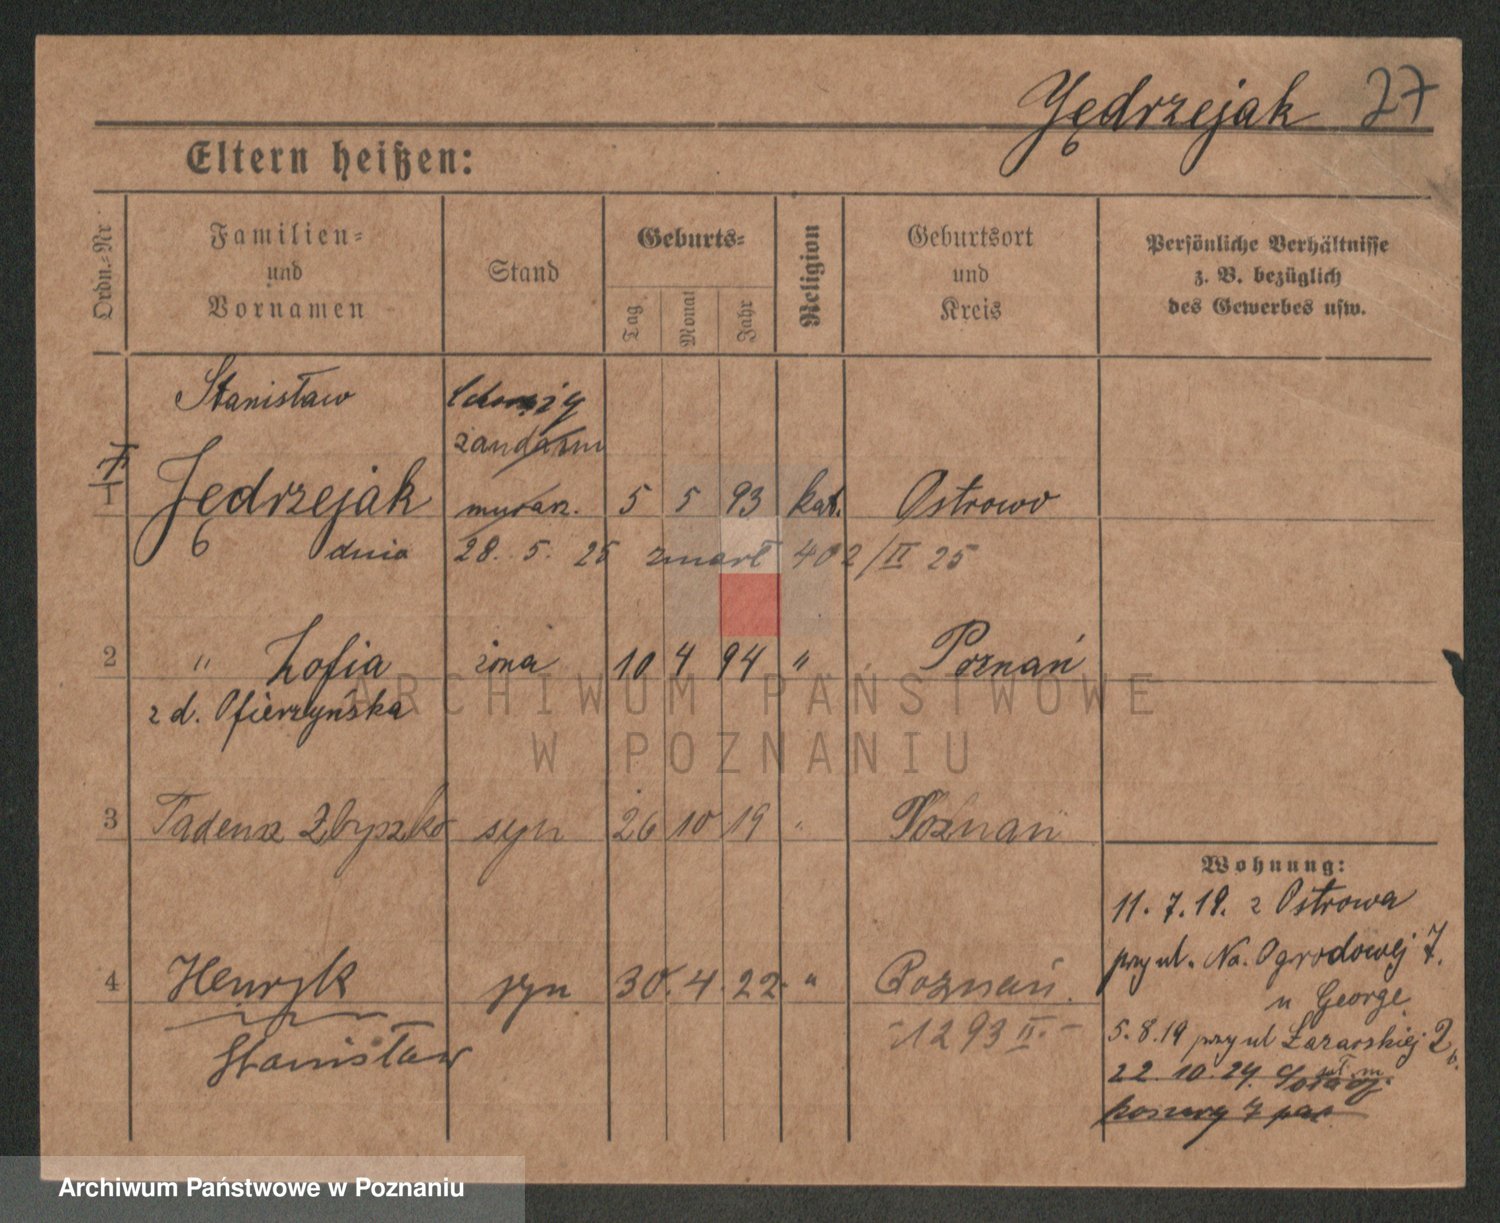 Jędrzejak 27
Eltern heißen:
Ordn.-Nr
Familien-
und
Vornamen
Stand
Geburts-
Tag
Monat
Jahr
Religion
Geburtsort
und
Kreis
Persönliche Verhältnisse
z. B. bezüglich
des Gewerbes usw.
Stanisław
żandarm
1 Jędrzejak murarz. 5 5 93 kat. Ostrowo
dnia 28. 5. 25 zmarł 402/II 25
2 " Zofia żona 10 4 94 " Poznań
z d. Ofierzyńska
3 Tadeusz Zbyszko syn 26 10 19 " Poznań
Wohnung:
11. 7. 19. z Ostrowa
przy ul. Na. Ogrodowej 7.
u George
4 Henryk syn 30. 4. 22. " Poznań.
Stanisław
-1293 II.-
5. 8. 19 przy ul Łazarskiej 2
22. 10. 24.
ARCHIWUM PAŃSTWOWE
W POZNANIU
Archiwum Państwowe w Poznaniu